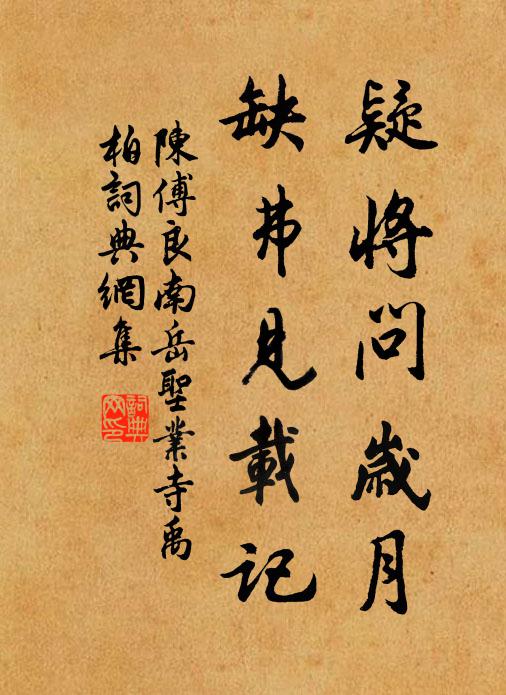 疑將問歲月
缺弗見載記
陳傅良南岳聖業寺禹
柏詞典網集
詞典
网印